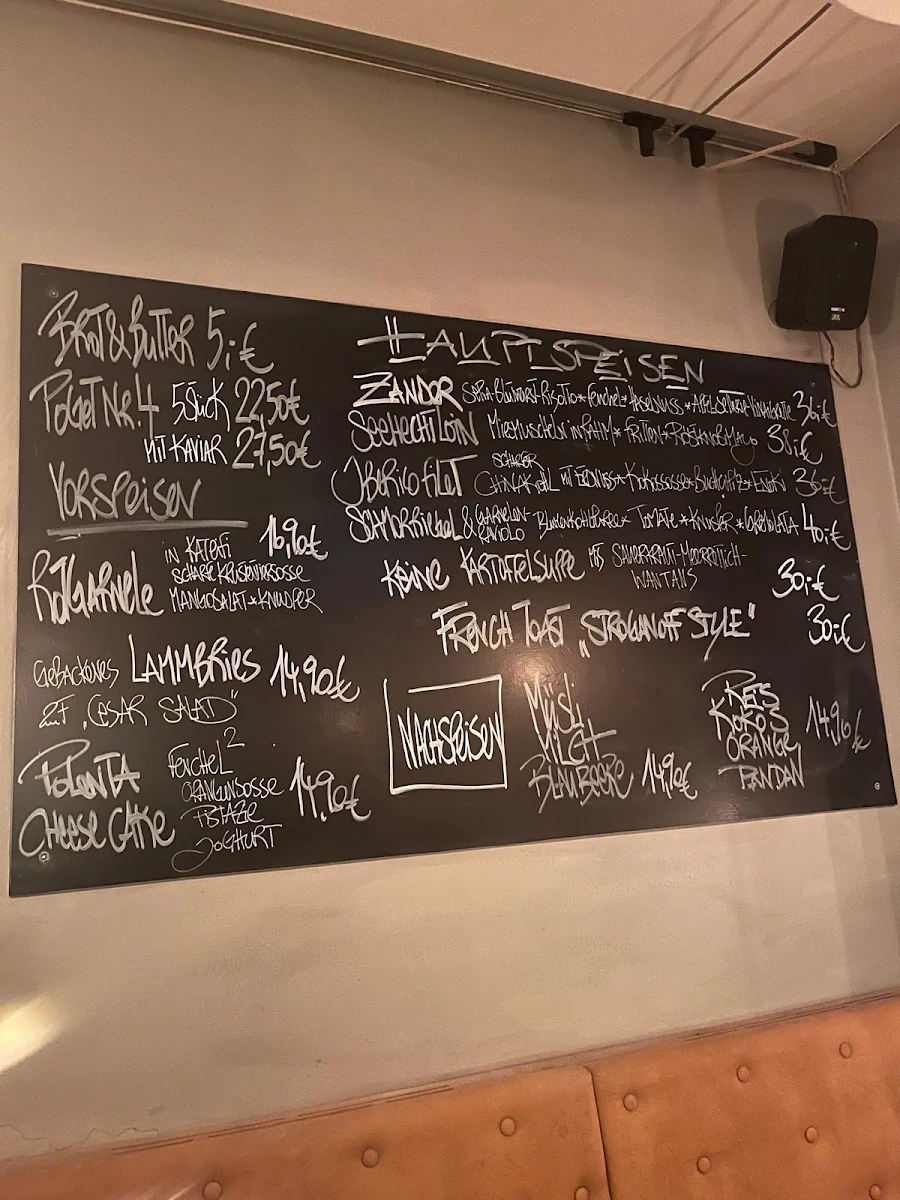 Brot & Butter 5,- €
Pulpo Nr. 4 5 Stück 22,50€
mit Kaviar 27,50€
Vorspeisen
Rotgarnele in Kataifi 16,90€
scharfe Krustentiersosse
Mangosalat * Knusper
Gebackenes Lammbries 14,90€
2.7 „Cesar Salad"
Polenta Cheese Cake Fenchel² 14,90€
Orangensosse
Pistazie
Joghurt
Hauptspeisen
Zander Blutwurst-Risotto * Fenchel * Haselnuss * Apfel Sellerie-Vinaigrette 36,-€
Seehecht Loin Miesmuscheln in Rahm * Fritten * Mayo 38,-€
Iberico Filet scharfer Chinakohl mit Erdnuss * Kokossosse * Buchenpilz * Enoki 36,-€
Schmorrindl & Garnelen-Raviolo Blumenkohlpüree * Tomate * Knusper * Gremolata 40,-€
Keine Kartoffelsuppe mit Sauerkraut-Meerrettich-
Wantans 30,-€
French Toast „Stroganoff Style" 30,-€
Nachspeisen
Müsli
Milch
Blaubeere 14,90€
Reis
Kokos
Orange
Pandan 14,90€
JBL